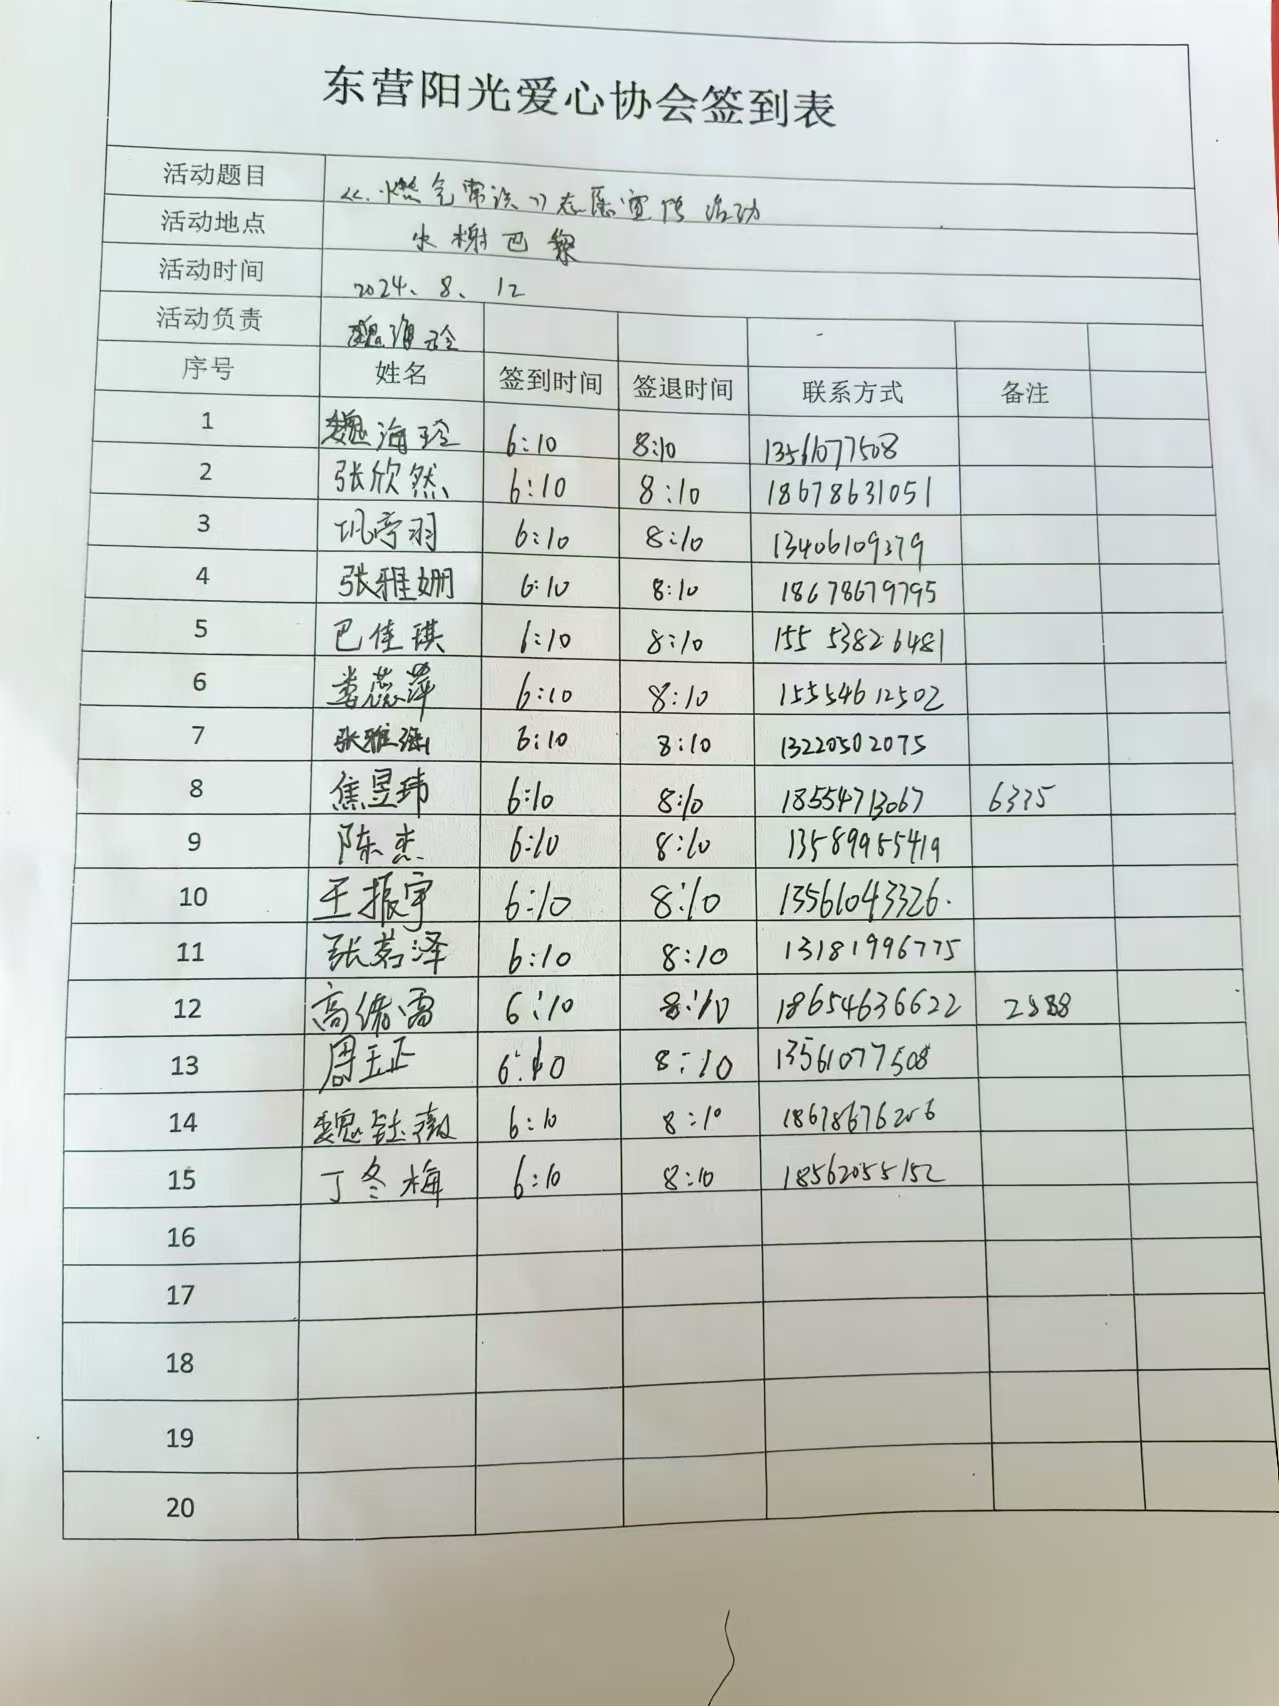 东营阳光爱心协会签到表
活动题目 《燃气常识》志愿宣传活动
活动地点 水榭巴黎
活动时间 2024、8、12
活动负责 魏海玲
序号 姓名 签到时间 签退时间 联系方式 备注
1 魏海玲 6:10 8:10 13561077508
2 张欣然 6:10 8:10 18678631051
3 巩亭羽 6:10 8:10 13406109379
4 张雅姗 6:10 8:10 18678679795
5 巴佳琪 6:10 8:10 155 5382 6481
6 娄蕊萍 6:10 8:10 15554612502
7 张雅 6:10 8:10 13220502075
8 焦昱玮 6:10 8:10 18554713067 6335
9 陈杰 6:10 8:10 13589955419
10 王振宇 6:10 8:10 13561043326.
11 张茗泽 6:10 8:10 13181996775
12 高绪雷 6:10 8:10 18654636622 2888
13 周玉正 6:10 8:10 13561077508
14 魏钰薇 6:10 8:10 18678676206
15 丁冬梅 6:10 8:10 18562055152
16
17
18
19
20